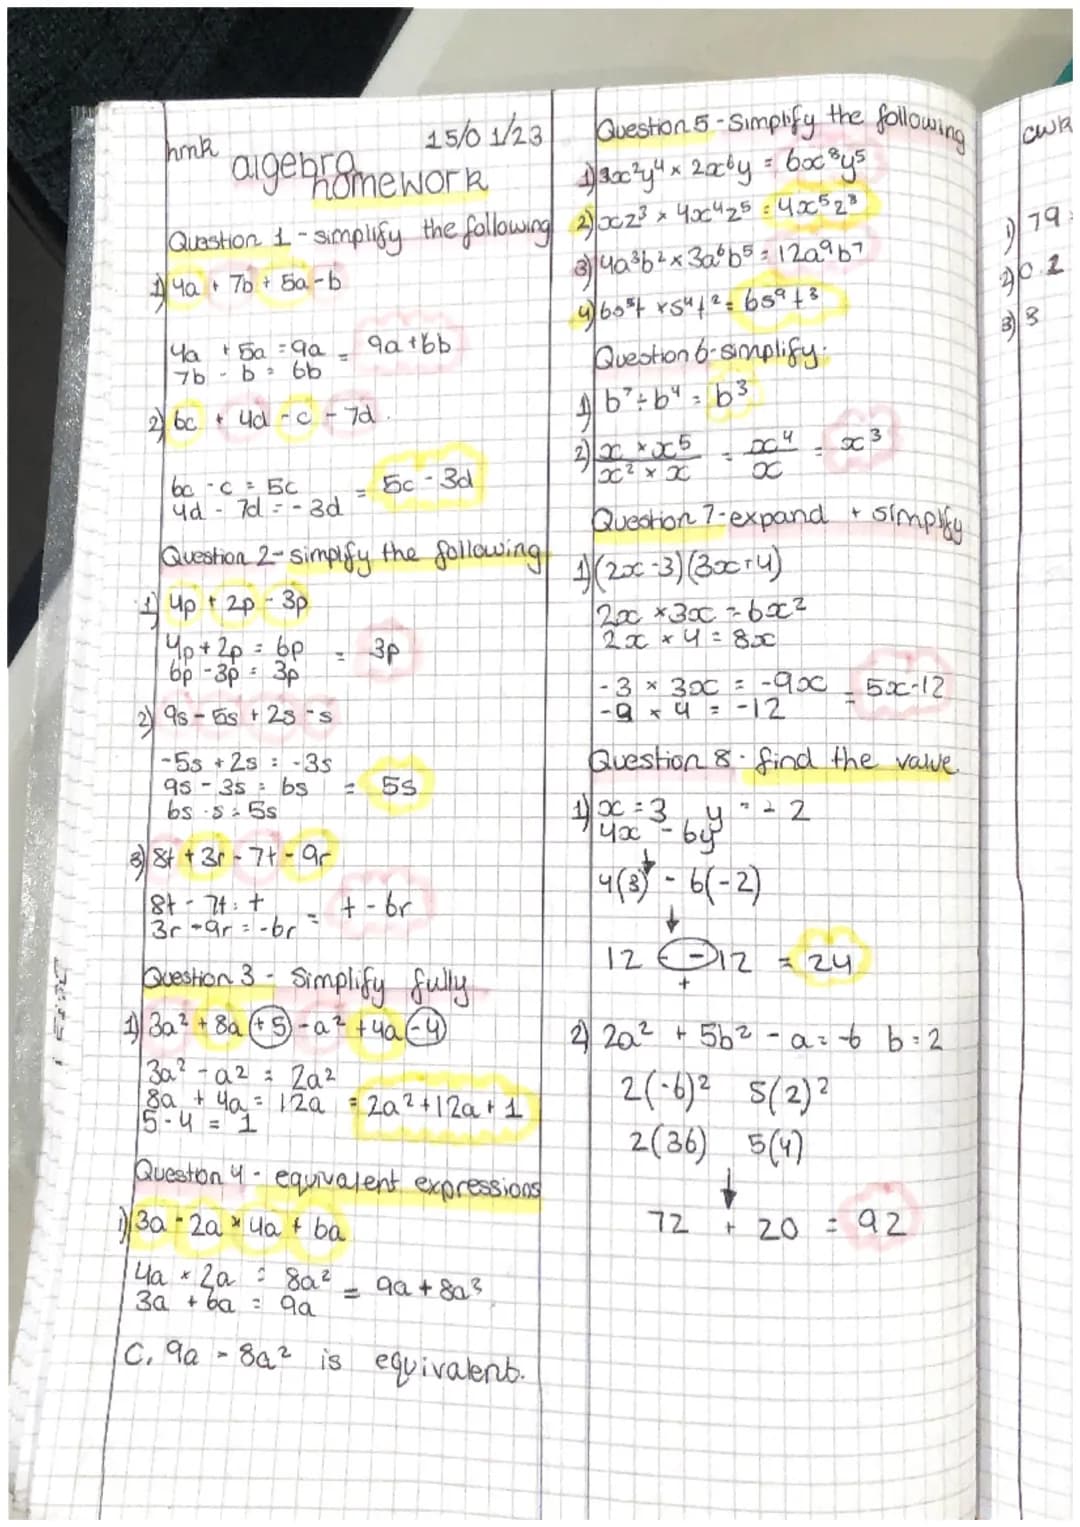 hmk 15/01/23
algebra
homework
Question 1 - simplify the following
1) 4a + 7b + 5a - b
4a + 5a = 9a = 9a + 6b
7b - b = 6b
2) 6c + 4d - c - 7d
6c - c = 5c = 5c - 3d
4d - 7d = - 3d
Question 2 - simplify the following
1) 4p + 2p - 3p
4p + 2p = 6p = 3p
6p - 3p = 3p
2) 9s - 5s + 2s - s
-5s + 2s = -3s
9s - 3s = 6s = 5s
6s - s = 5s
3) 8t + 3r - 7t - 9r
8t - 7t = t = t - 6r
3r - 9r = -6r
Question 3 - Simplify fully
1) 3a² + 8a + 5 - a² + 4a - 4
3a² - a² = 2a²
8a + 4a = 12a = 2a² + 12a + 1
5 - 4 = 1
Question 4 - equivalent expressions
1) 3a - 2a × 4a + 6a
4a × 2a = 8a² = 9a + 8a³
3a + 6a = 9a
C, 9a - 8a² is equivalent.
Question 5 - Simplify the following
1) 3x²y⁴ × 2x⁶y = 6x⁸y⁵
2) xz³ × 4x⁴z⁵ = 4x⁵z⁸
3) 4a³b² × 3a⁶b⁵ = 12a⁹b⁷
4) 6s⁵t × s⁴t² = 6s⁹t³
Question 6 - simplify.
1) b⁷ ÷ b⁴ = b³
2) x × x⁵ = x⁴ = x³
x² × x x
Question 7 - expand + simplify
1) (2x - 3)(3x + 4)
2x × 3x = 6x²
2x × 4 = 8x
-3 × 3x = -9x = 5x - 12
× 4 = -12
Question 8 - find the value
1) x = 3 y = - 2
4x - 6y
4(3) - 6(-2)
12 - - 12 = 24
+
2) 2a² + 5b² - a = -6 b = 2
2(-6)² 5(2)²
2(36) 5(4)
72 + 20 = 92
cwk
1) 79
2) 0.2
3) 8